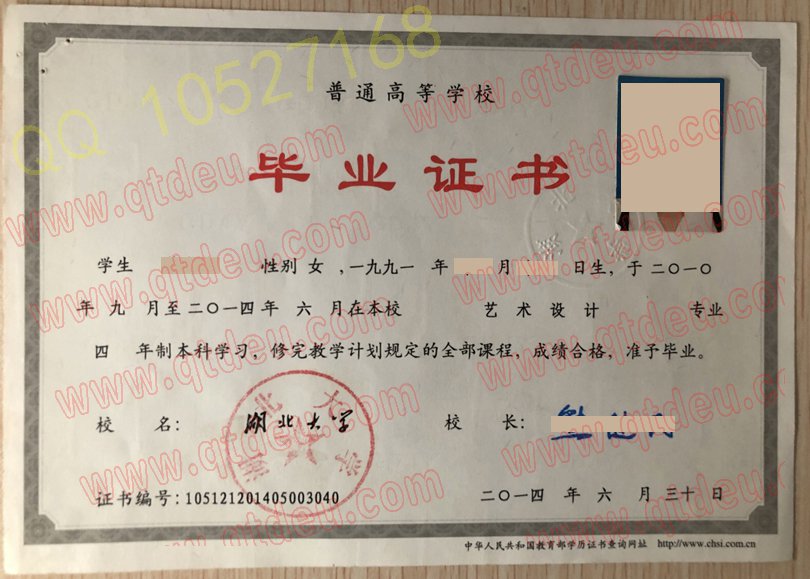 QQ 10527168
www.qtdeu.com
普通高等学校
毕业证书
学生 性别 女 ，一九九一 年 月 日生，于 二〇一〇
年 九 月至 二〇一四 年 六 月在本校 艺术设计 专业
四 年制本科学习，修完教学计划规定的全部课程，成绩合格，准予毕业。
校 名： 湖北大学 校 长：
湖北大学
证书编号：105121201405003040 二〇一四 年 六 月 三十 日
中华人民共和国教育部学历证书查询网址 http://www.chsi.com.cn